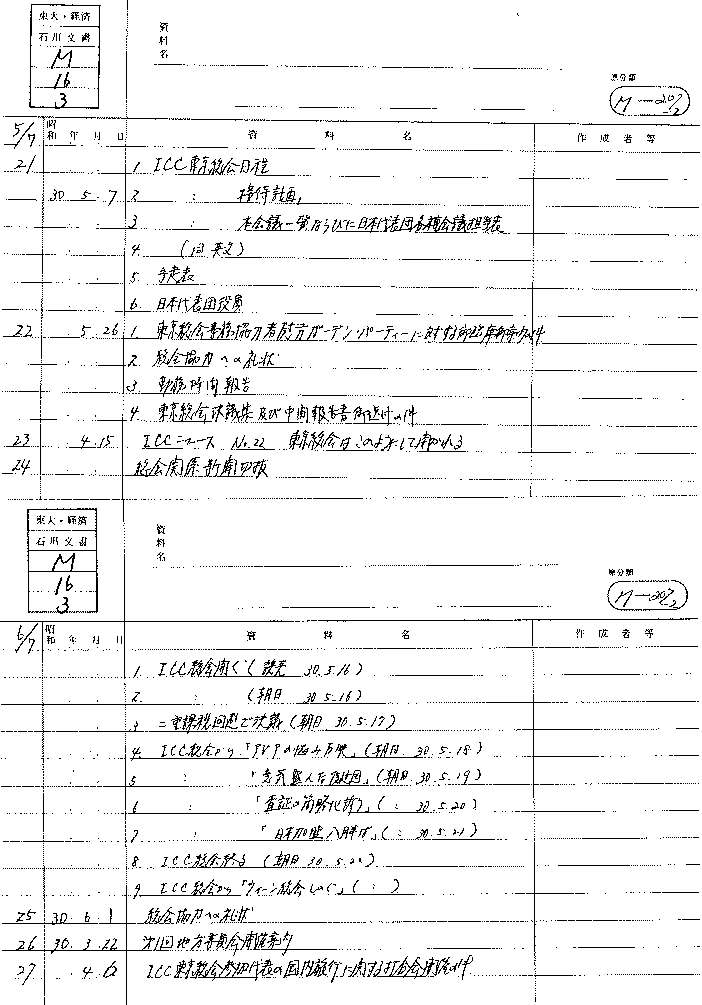 東大・経済
石川文書
M
16
3
資料名
原分類
M-20?-2
5/7 昭和 年 月 日 資料名 作成者等
21 1. ICC東京総会日程
30 5 7 2 : 接待計画
3 : 本会議一覧ならびに日本代表団各種会議担当表
4. (同 英文)
5. 予定表
6. 日本代表団役員
22 5 26 1. 東京総会準備協力者慰労ガーデン・パーティーに対する御臨席御案内の件
2. 総会協力への礼状
3. 勤務時間報告
4. 東京総会決議集及び中間報告書御送付の件
23 4 15 ICCニュース No.22 東京総会はこのようにして開かれる
24 総会関係新聞切抜
東大・経済
石川文書
M
16
3
資料名
原分類
6/7 昭和 年 月 日 資料名 作成者等
1. ICC総会開く(読売 30.5.16)
2. : (朝日 30.5.16)
3 二重課税回避で決議(朝日 30.5.17)
4. ICC総会から「アジアの悩み反映」(朝日 30.5.18)
5 : 「意気盛んな後進国」(朝日 30.5.19)
6 : 「査証の簡略化折り」(: 30.5.20)
7 : 「日本加盟八勝は」(: 30.5.21)
8. ICC総会終る (朝日 30.5.22)
9. ICC総会から「ウィーン総会しのぐ」(:)
25 30 6 1 総会協力への礼状
26 30 3 22 次1回地方委員会開催案内
27 4 6 ICC東京総会参加代表の国内旅行に関する打合会開催の件